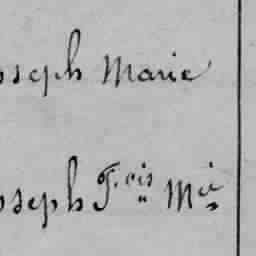 oseph Marie
oseph F.cis Mie